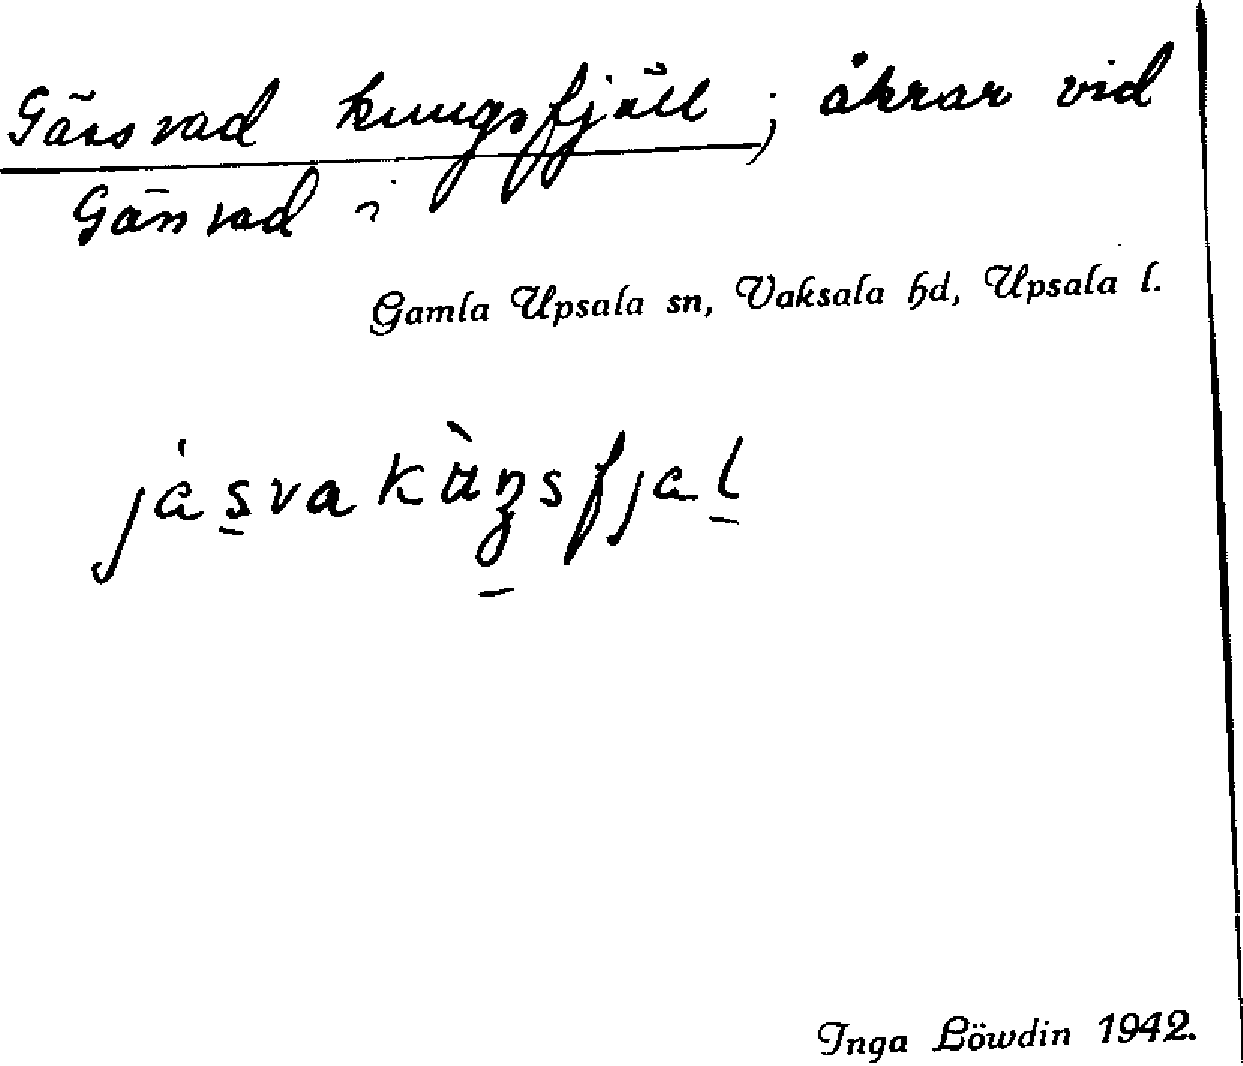 Gäsvad kungsfjäll; åkrar vid
Gäsvad i
Gamla Upsala sn, Vaksala hd, Upsala l.
Inga Löwdin 1942.